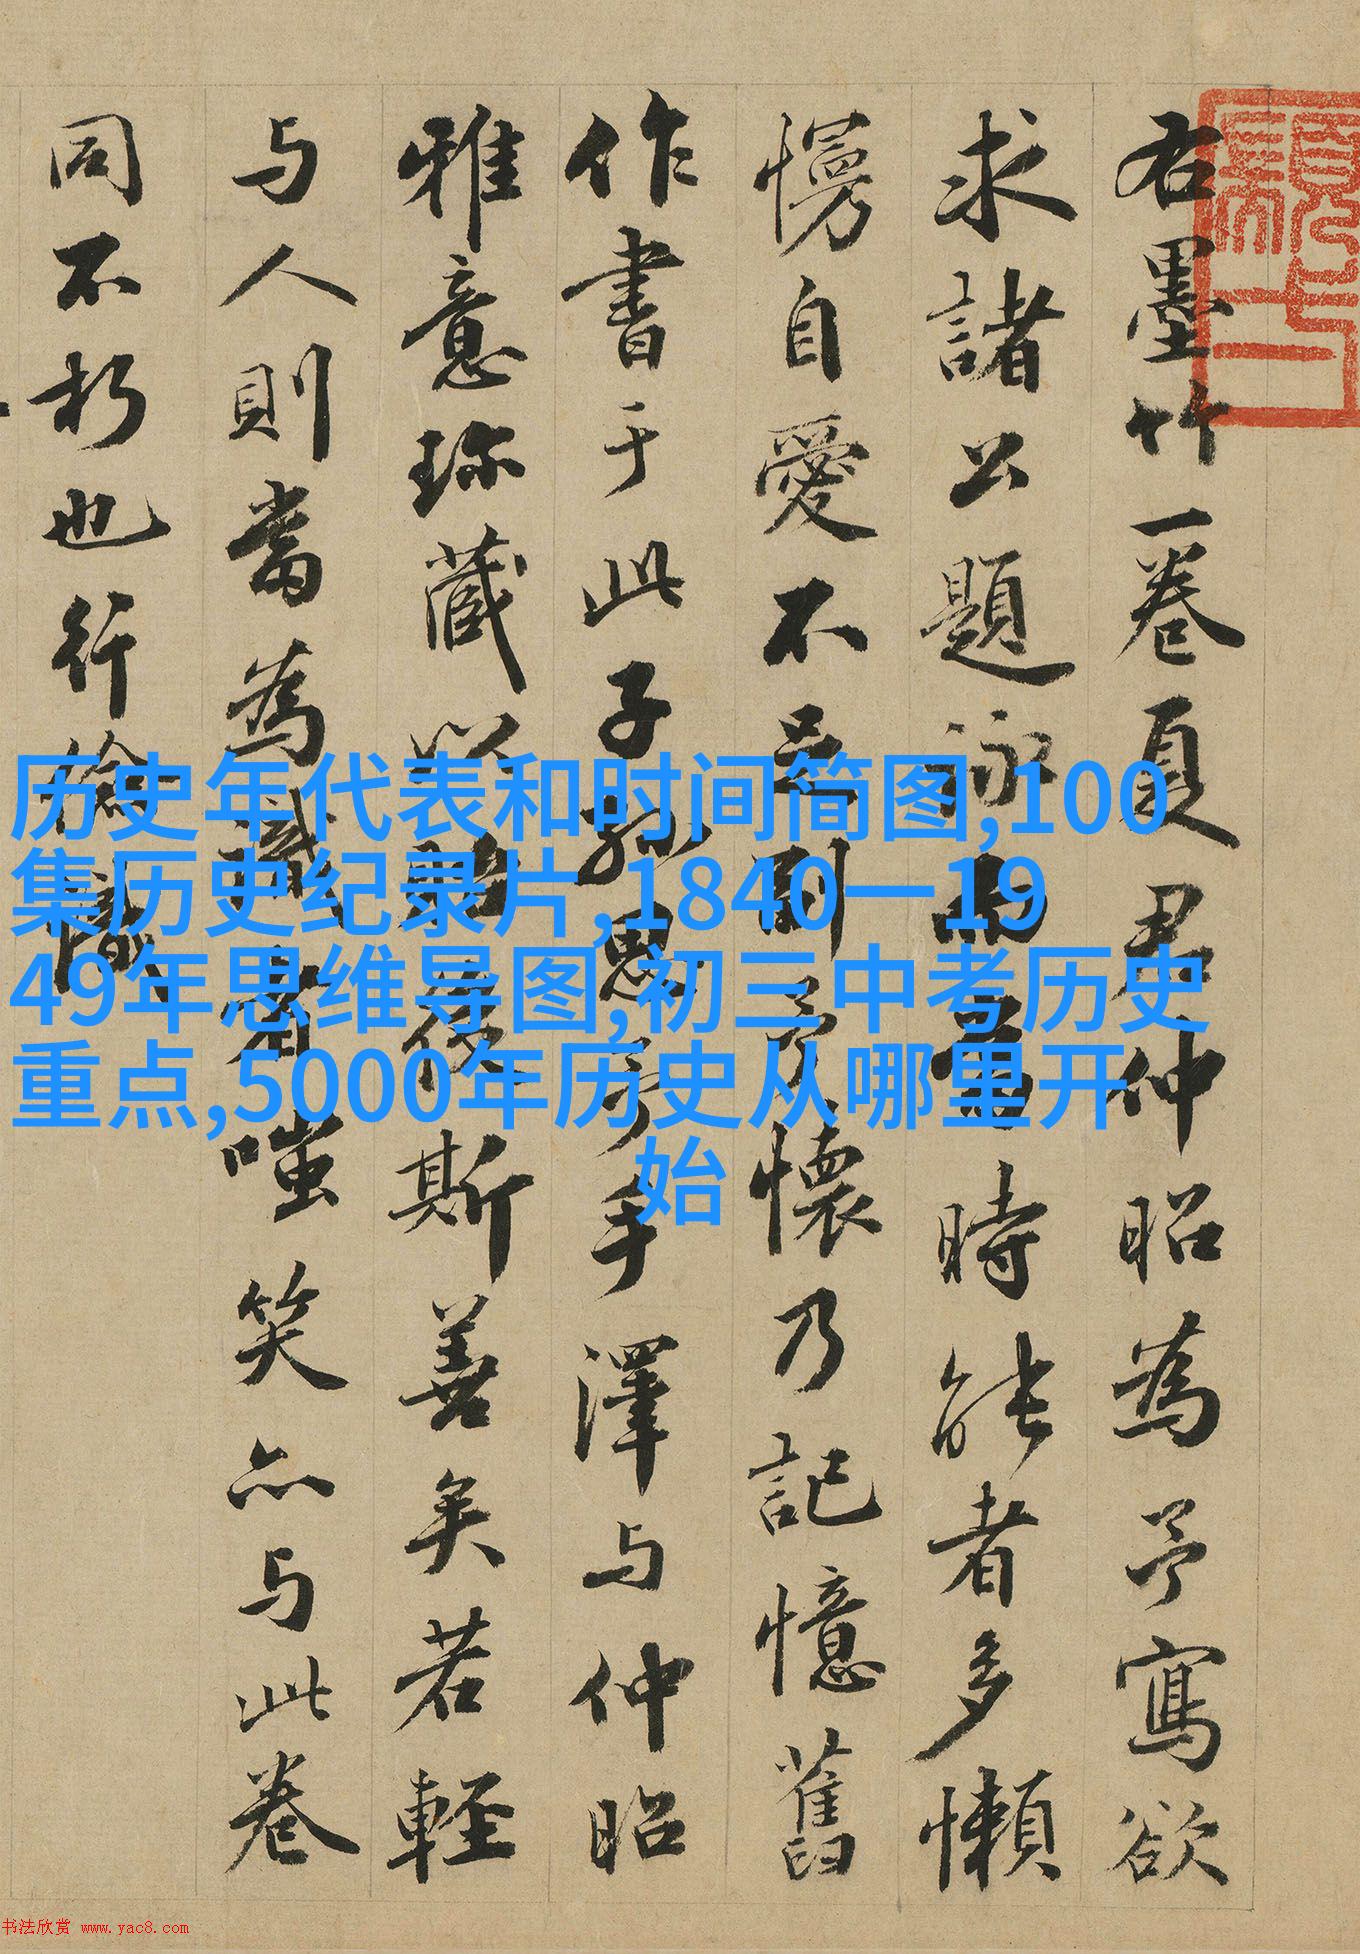 右墨竹一卷夏君仲昭為予寫欲
求諸公題詠而一時能者多懶
慢自愛不予懷乃記憶舊
作書于此子孫思予手澤与仲昭
雅意珍藏以貽後斯善矣若輕
与人則當為識者嗤笑亦与此卷
同不朽也行儉識
历史年代表和时间简图,100
集历史纪录片,1840一19
49年思维导图,初三中考历史
重点,5000年历史从哪里开
始
书法欣赏 www.yac8.com